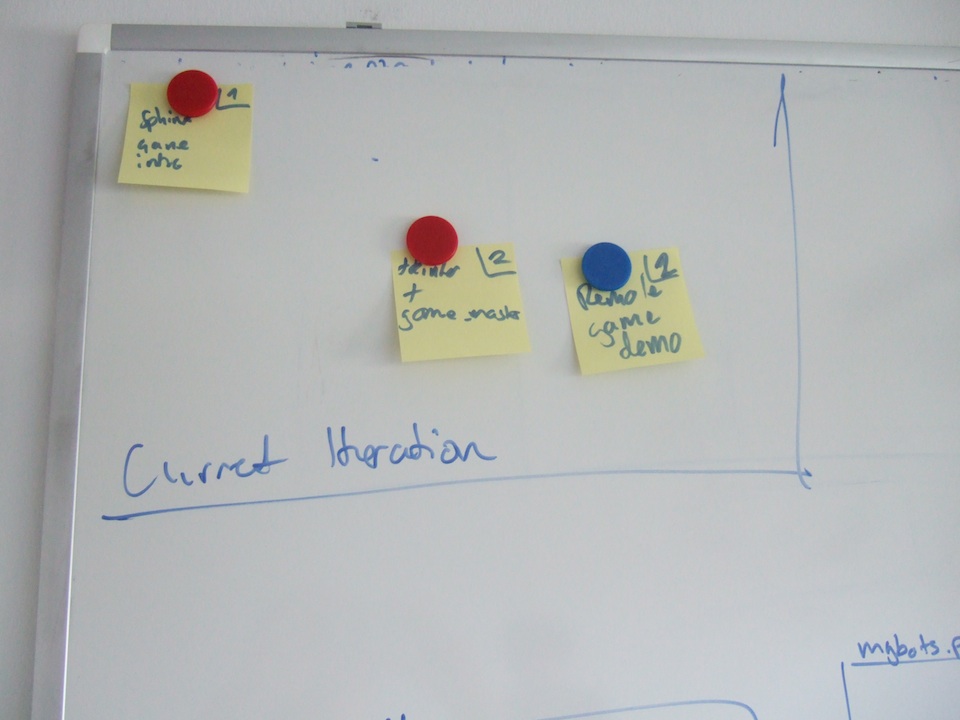 1
game
intro
2
+
game_master
2
Remote
game
demo
Current Iteration
mybots.p